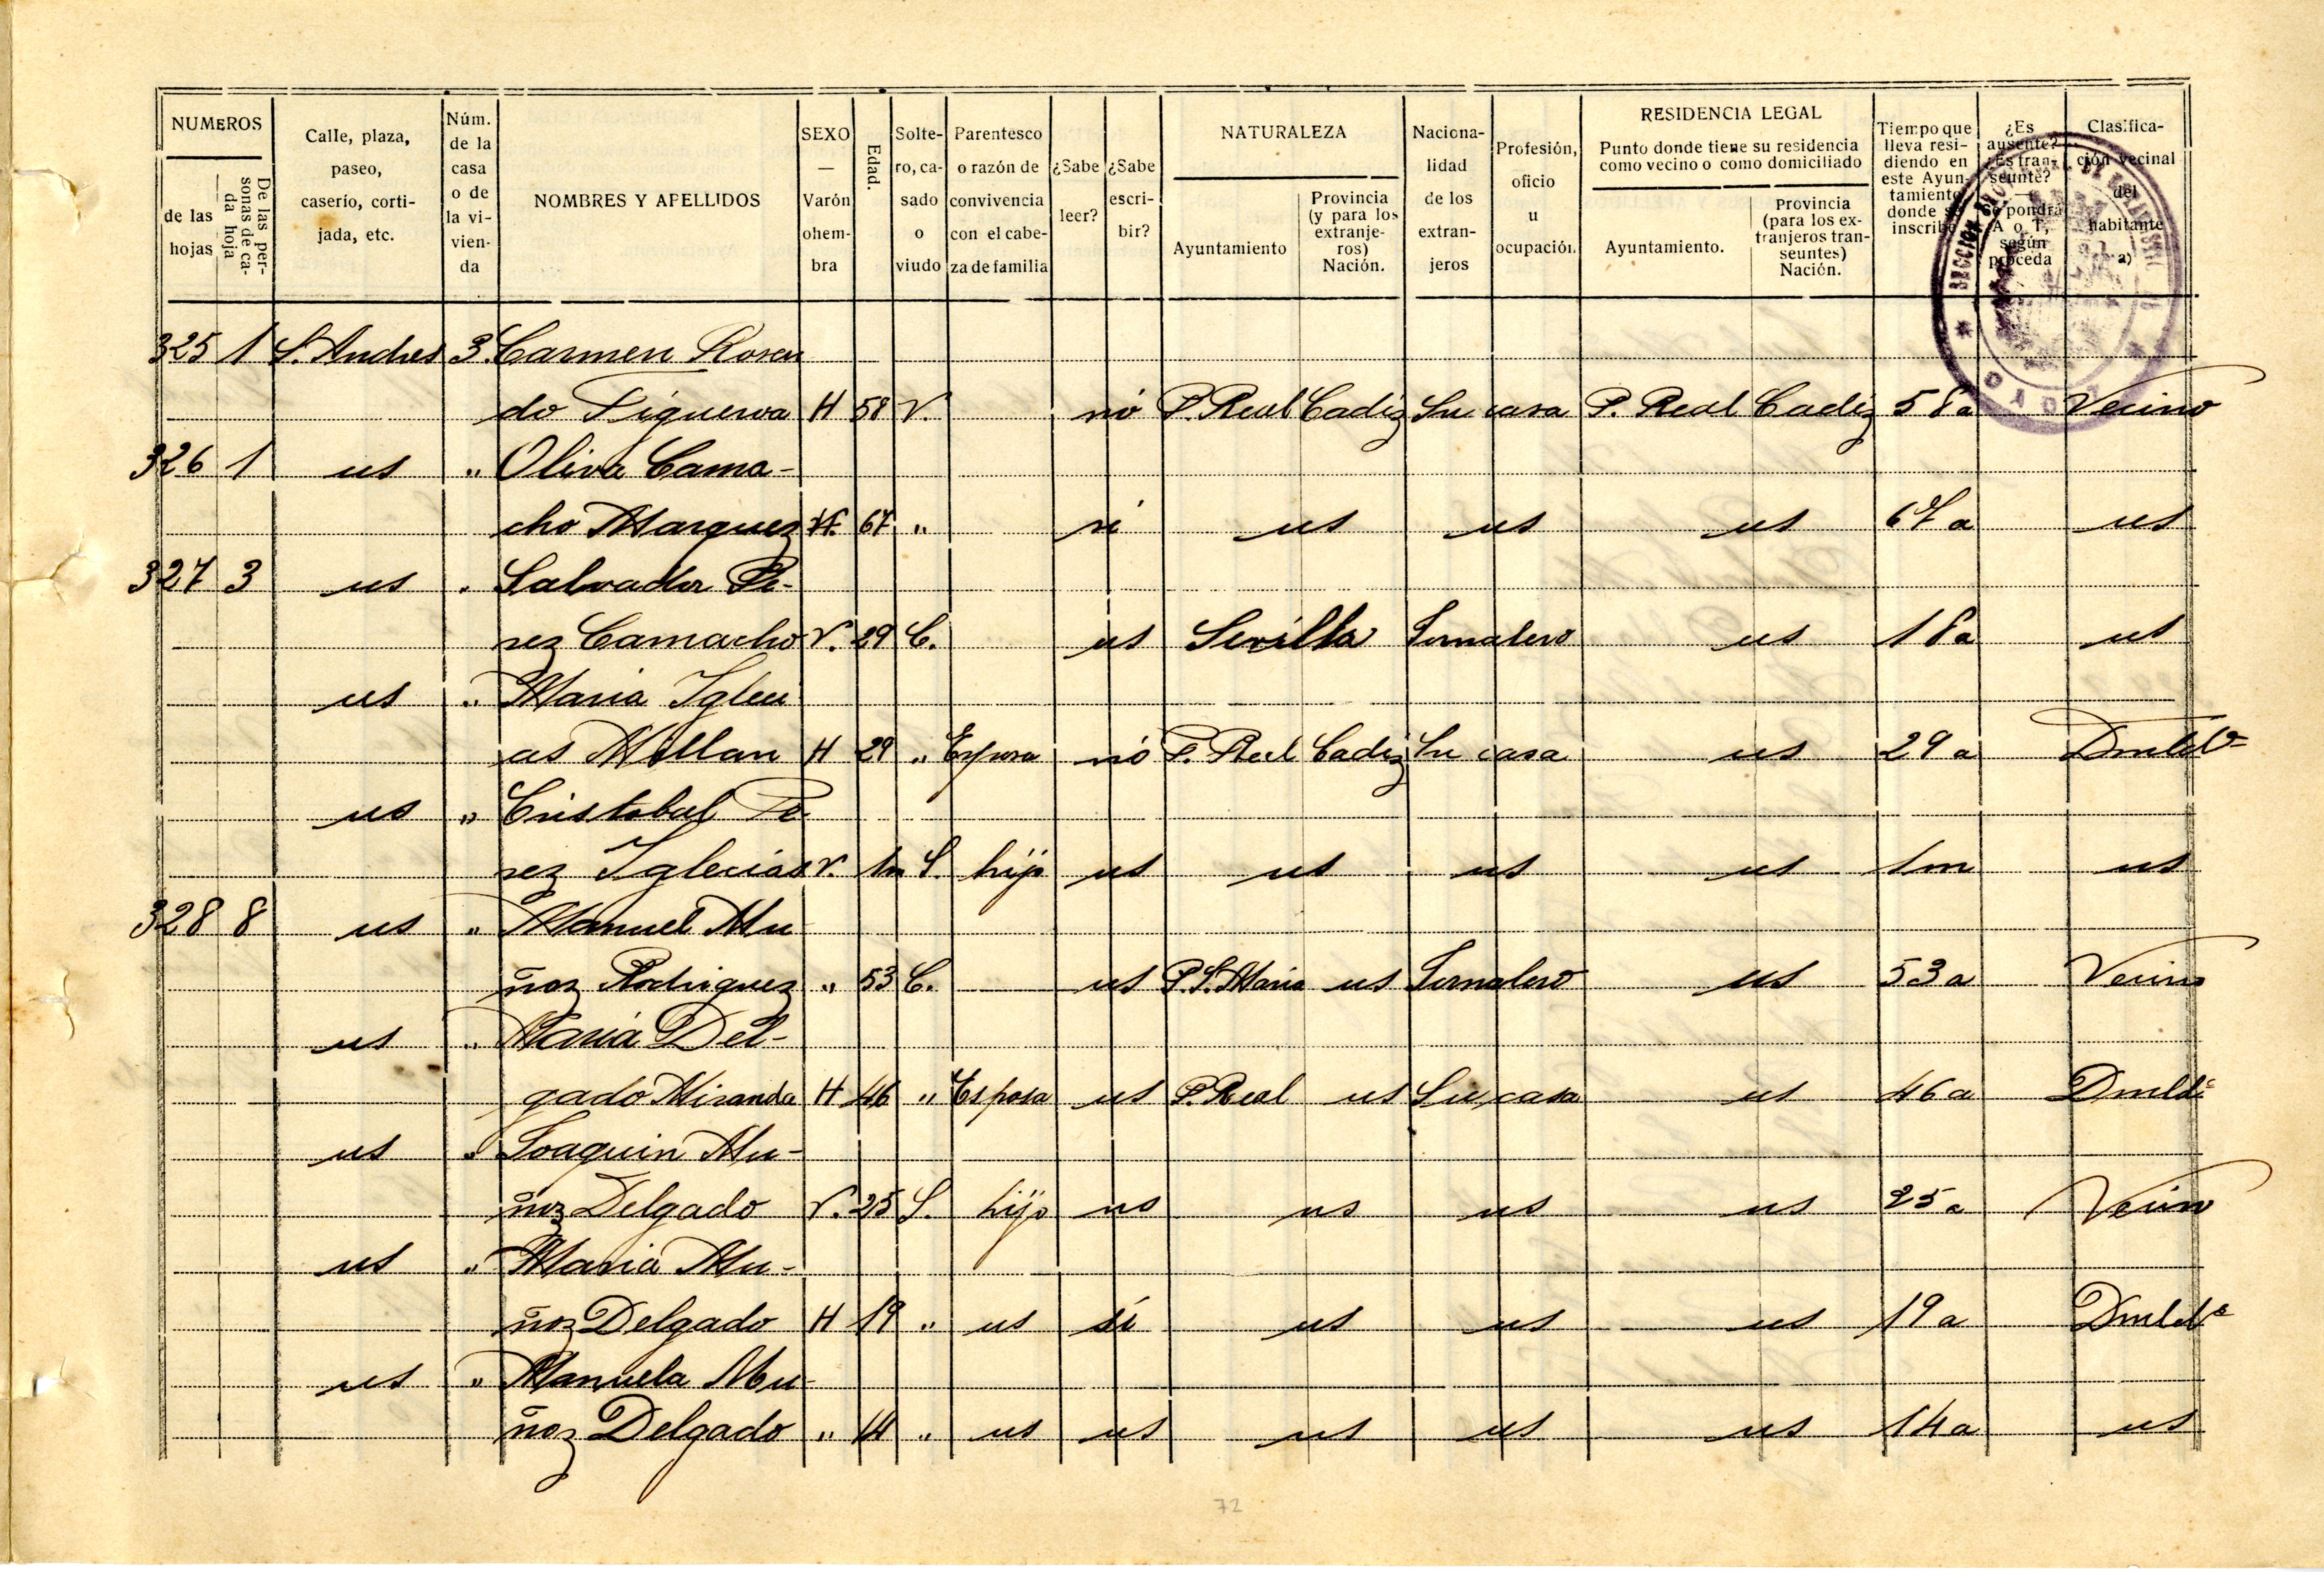 NUMEROS
de las hojas
De las personas de cada hoja
Calle, plaza, paseo, caserío, cortijada, etc.
Núm. de la casa o de la vivienda
NOMBRES Y APELLIDOS
SEXO — Varón ohembra
Edad.
Soltero, casado o viudo
Parentesco o razón de convivencia con el cabeza de familia
¿Sabe leer?
¿Sabe escribir?
NATURALEZA
Ayuntamiento
Provincia (y para los extranjeros) Nación.
Nacionalidad de los extranjeros
Profesión, oficio u ocupación.
RESIDENCIA LEGAL
Punto donde tiene su residencia como vecino o como domiciliado
Ayuntamiento.
Provincia (para los extranjeros transeuntes) Nación.
Tiempo que lleva residiendo en este Ayuntamiento donde se inscribe
¿Es ausente? ¿Es transeunte? — Se pondrá A o T, según proceda
Clasificación vecinal del habitante (a)
SECCION PROVINCIAL DE
CADIZ
325 1 S. Andres 3. Carmen Rosen
do Figueroa H 58 V. no P. Real Cadiz Su casa P. Real Cadiz 58 a Vecino
326 1 us " Oliva Cama-
cho Marquez H. 67 " si us us us 67 a us
327 3 us " Salvador Pe-
rez Camacho V. 29 C. us Sevilla Jornalero us 18 a us
us " Maria Iglesi
as Millan H 29 " Esposa no P. Real Cadiz Su casa us 29 a Dmldo
us " Cristobal Pe
rez Iglecias V. 1m S. hijo us us us us 1m us
328 8 us " Manuel Mu
ñoz Rodriguez " 53 C. us P. S. Maria us Jornalero us 53 a Vecino
us " Maria Del-
gado Miranda H 46 " Esposa us P. Real us Su casa us 46 a Dmldo
us " Joaquin Mu-
ñoz Delgado V. 25 S. hijo us us us us 25 a Vecino
us " Maria Mu-
ñoz Delgado H 19 " us si us us us 19 a Dmldo
us " Manuela Mu-
ñoz Delgado " 14 " us us us us us 14 a us
72